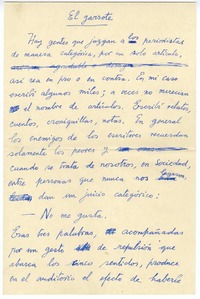 El garrote
Hay gentes que juzgan a los periodistas
de manera categórica, por un solo artículo,
así sea en pro o en contra. En mi caso
escribí algunos miles; a veces no merecían
el nombre de artículos. Escribí relatos,
cuentos, croniquillas, notas. En general
los enemigos de los escritores recuerdan
solamente los peores y
cuando se trata de nosotros, en sociedad,
entre personas que nunca nos
dan un juicio categórico:
— No me gusta.
Esas tres palabras, acompañadas
por un gesto de repulsión que
abarca los cinco sentidos, produce
en el auditorio el efecto de haberle